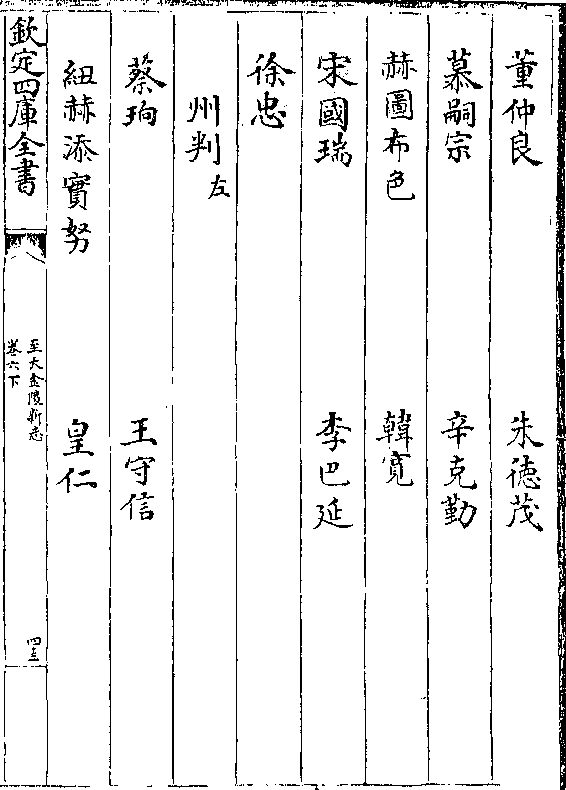 董仲良　朱徳茂
慕嗣宗　辛克勤
赫圖布色　韓寛
宋國瑞　李巴延
徐忠
州判左
蔡珣　王守信
紐赫添實努　皇仁
欽定四庫全書
至大金陵新志
卷六下
四三